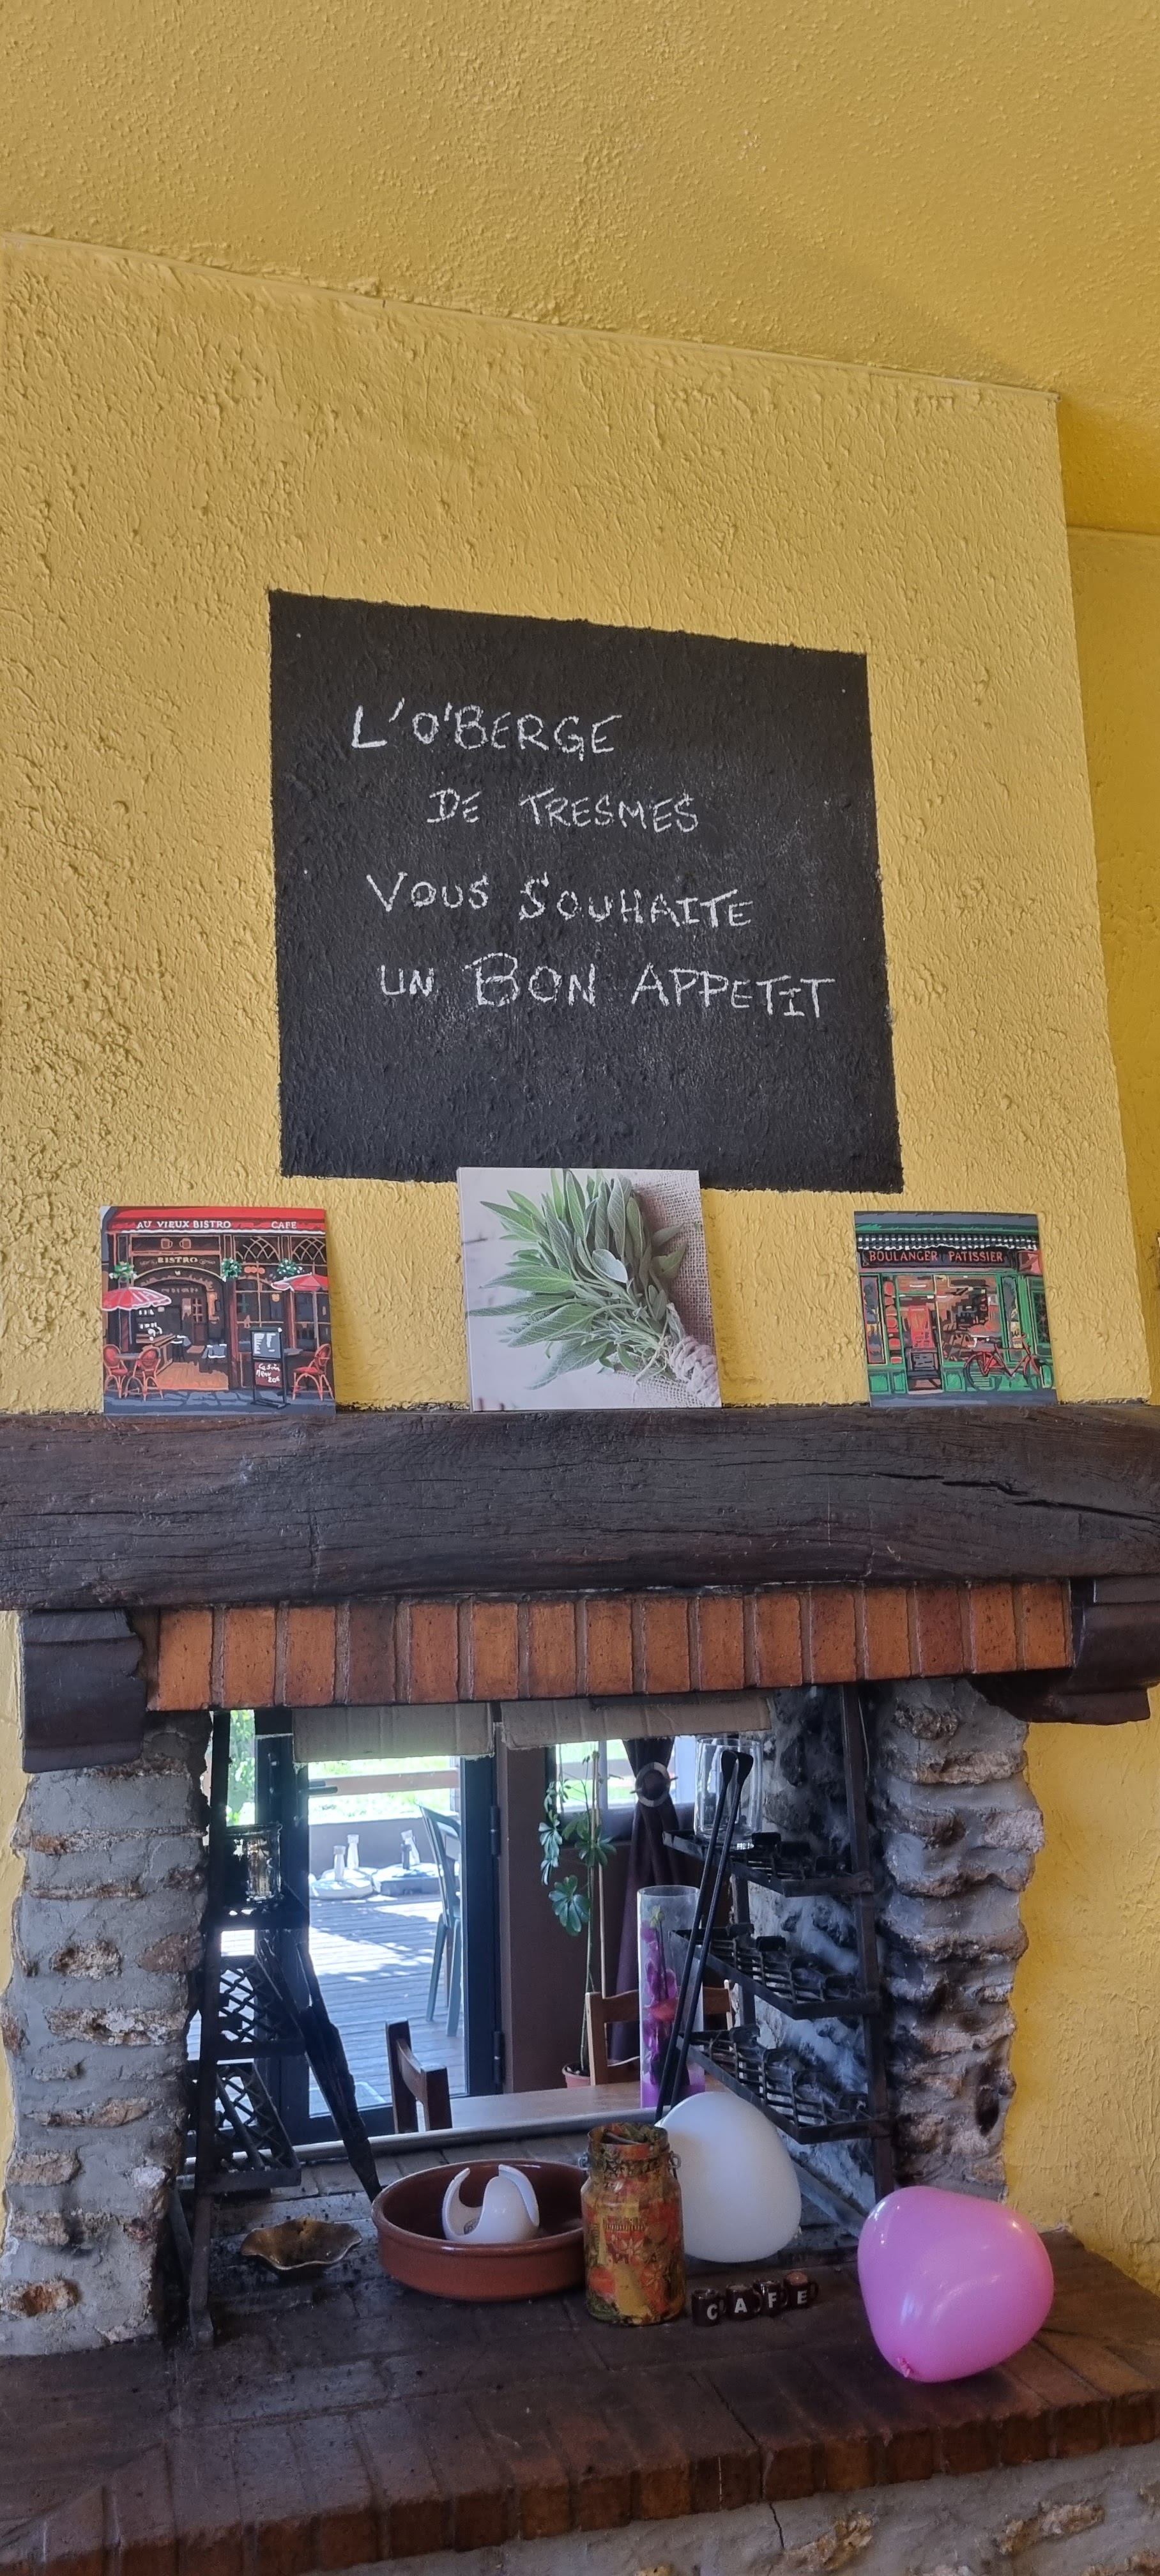 L'O'BERGE
DE TRESMES
VOUS SOUHAITE
UN BON APPETIT
AU VIEUX BISTRO CAFE
BISTRO
BOULANGER PATISSIER
CAFE